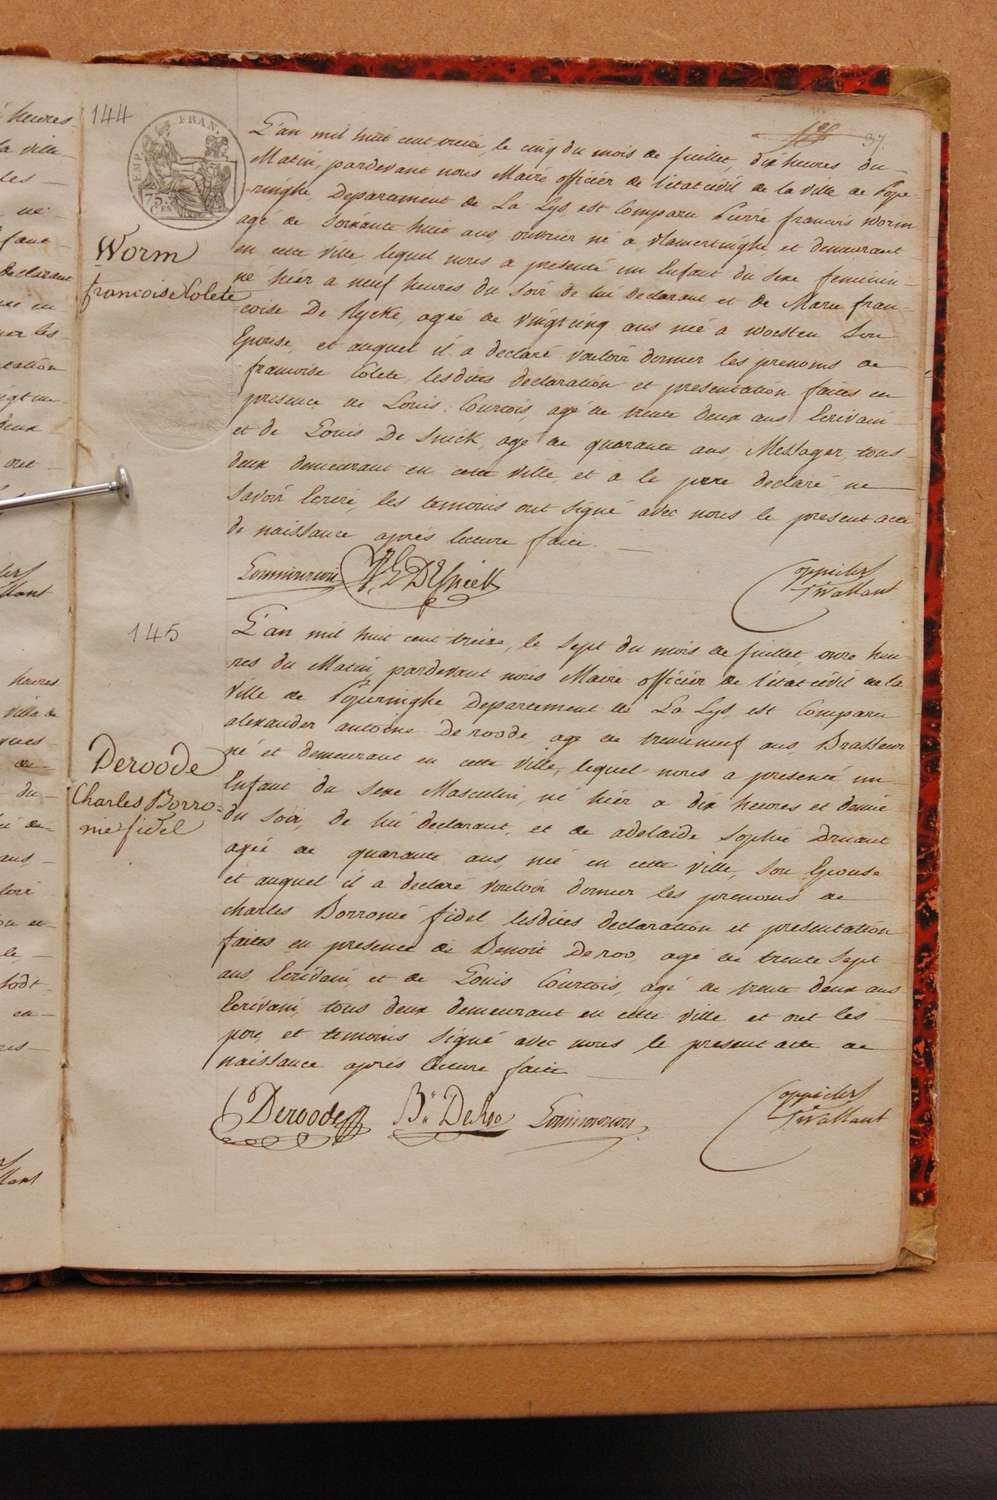 144
37
EMP. FRAN.
75 C.
L'an mil huit cent treize, le cinq du mois de juillet, dix heures du
Matin, pardevant nous Maire officier de l'etat civil de la ville de Pope-
ringhe, Departement de La Lys, est Comparu Pierre francois Worm
agé de Soixante huit ans, ouvrier né a vlamertinghe, et demeurant
en cette ville, lequel nous a presenté un Enfant du Sexe feminin
né hier a neuf heures du Soir de lui declarant et de Marie fran-
coise De Rycke, agée de vingt cinq ans née a Woesten Son
Epouse, et auquel il a declaré vouloir donner les prenoms de
francoise Colete, lesdites declaration et presentation faites en
presence de Louis Courtois, agé de trente deux ans Ecrivain
et de Louis De Snick, agé de quarante ans Messager, tous
deux demeurant en cette ville, et a le pere declaré ne
Savoir Ecrire, les temoins ont signé avec nous le present acte
de naissance après lecture faite.
Worm
francoise Colete
145
L'an mil huit cent treize, le Sept du mois de juillet, onze heu-
res du Matin, pardevant nous Maire officier de l'etat civil de la
Ville de Poperinghe Departement de La Lys est Comparu
alexander antoine Deroode, agé de trenteneuf ans Brasseur
né et demeurant en cette ville, lequel nous a presenté un
Enfant du Sexe Masculin, né hier a dix heures et demie
du Soir, de lui declarant, et de adelaide Sophie Druant
agée de quarante ans née en cette ville, Son Epouse
et auquel il a declaré vouloir donner les prenoms de
Charles Borromé fidel lesdites declaration et presentation
faites en presence de Benoit Deroo, agé de trente Sept
ans Ecrivain, et de Louis Courtois, agé de trente deux ans
Ecrivain, tous deux demeurant en cette ville et ont les
pere et temoins signé avec nous le present acte de
naissance après lecture faite
Deroode
Charles Borro-
mé fidel
Deroode Bt. DeRoo